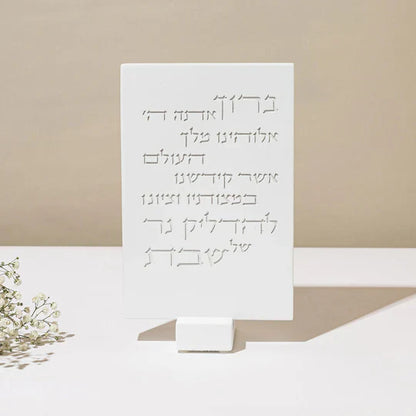 ברוך אתה ה'
אלוהינו מלך
העולם
אשר קידשנו
במצוותיו וציונו
להדליק נר
של שבת